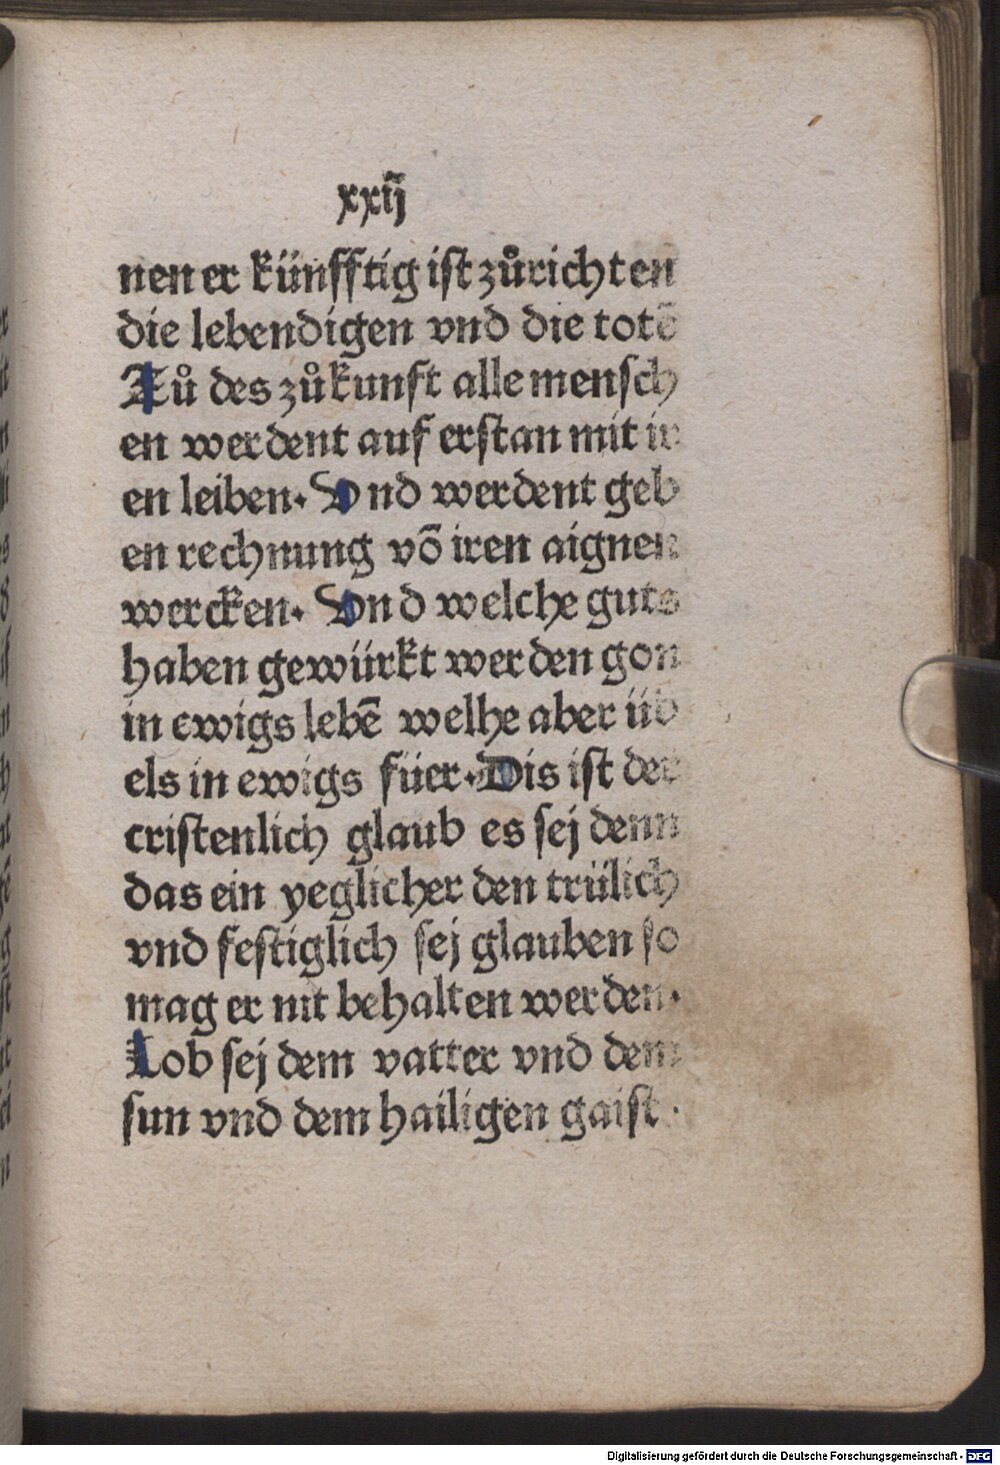 xxij
nen er künfftig ist zůrichten
die lebendigen vnd die totē
Zů des zůkunft alle mensch
en werdent auf erstan mit ir
en leiben. Vnd werdent geb
en rechnung võ iren aignen
wercken. Vnd welche guts
haben gewürkt werden gon
in ewigs lebē welhe aber üb
els in ewigs füer. Dis ist der
cristenlich glaub es sej denn
das ein yeglicher den trülich
vnd festiglich sej glauben so
mag er nit behalten werden.
Lob sej dem vatter vnd dem
sun vnd dem hailigen gaist.
Digitalisierung gefördert durch die Deutsche Forschungsgemeinschaft - DFG